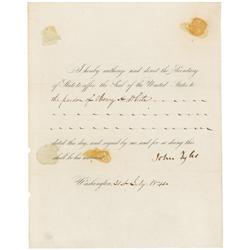 I hereby authorize and direct the Secretary
of State to affix the Seal of the United States to
the pardon of Henry H. White
dated this day, and signed by me and for so doing this
shall be his warrant.
John Tyler
Washington, 21st July 1844